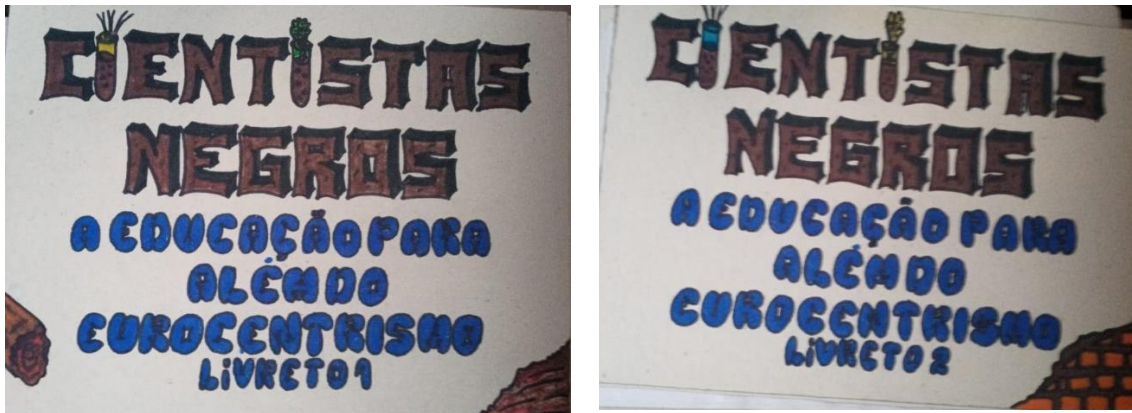 CIENTISTAS
NEGROS
A EDUCAÇÃO PARA
ALÉM DO
EUROCENTRISMO
LIVRETO 1
CIENTISTAS
NEGROS
A EDUCAÇÃO PARA
ALÉM DO
EUROCENTRISMO
LIVRETO 2